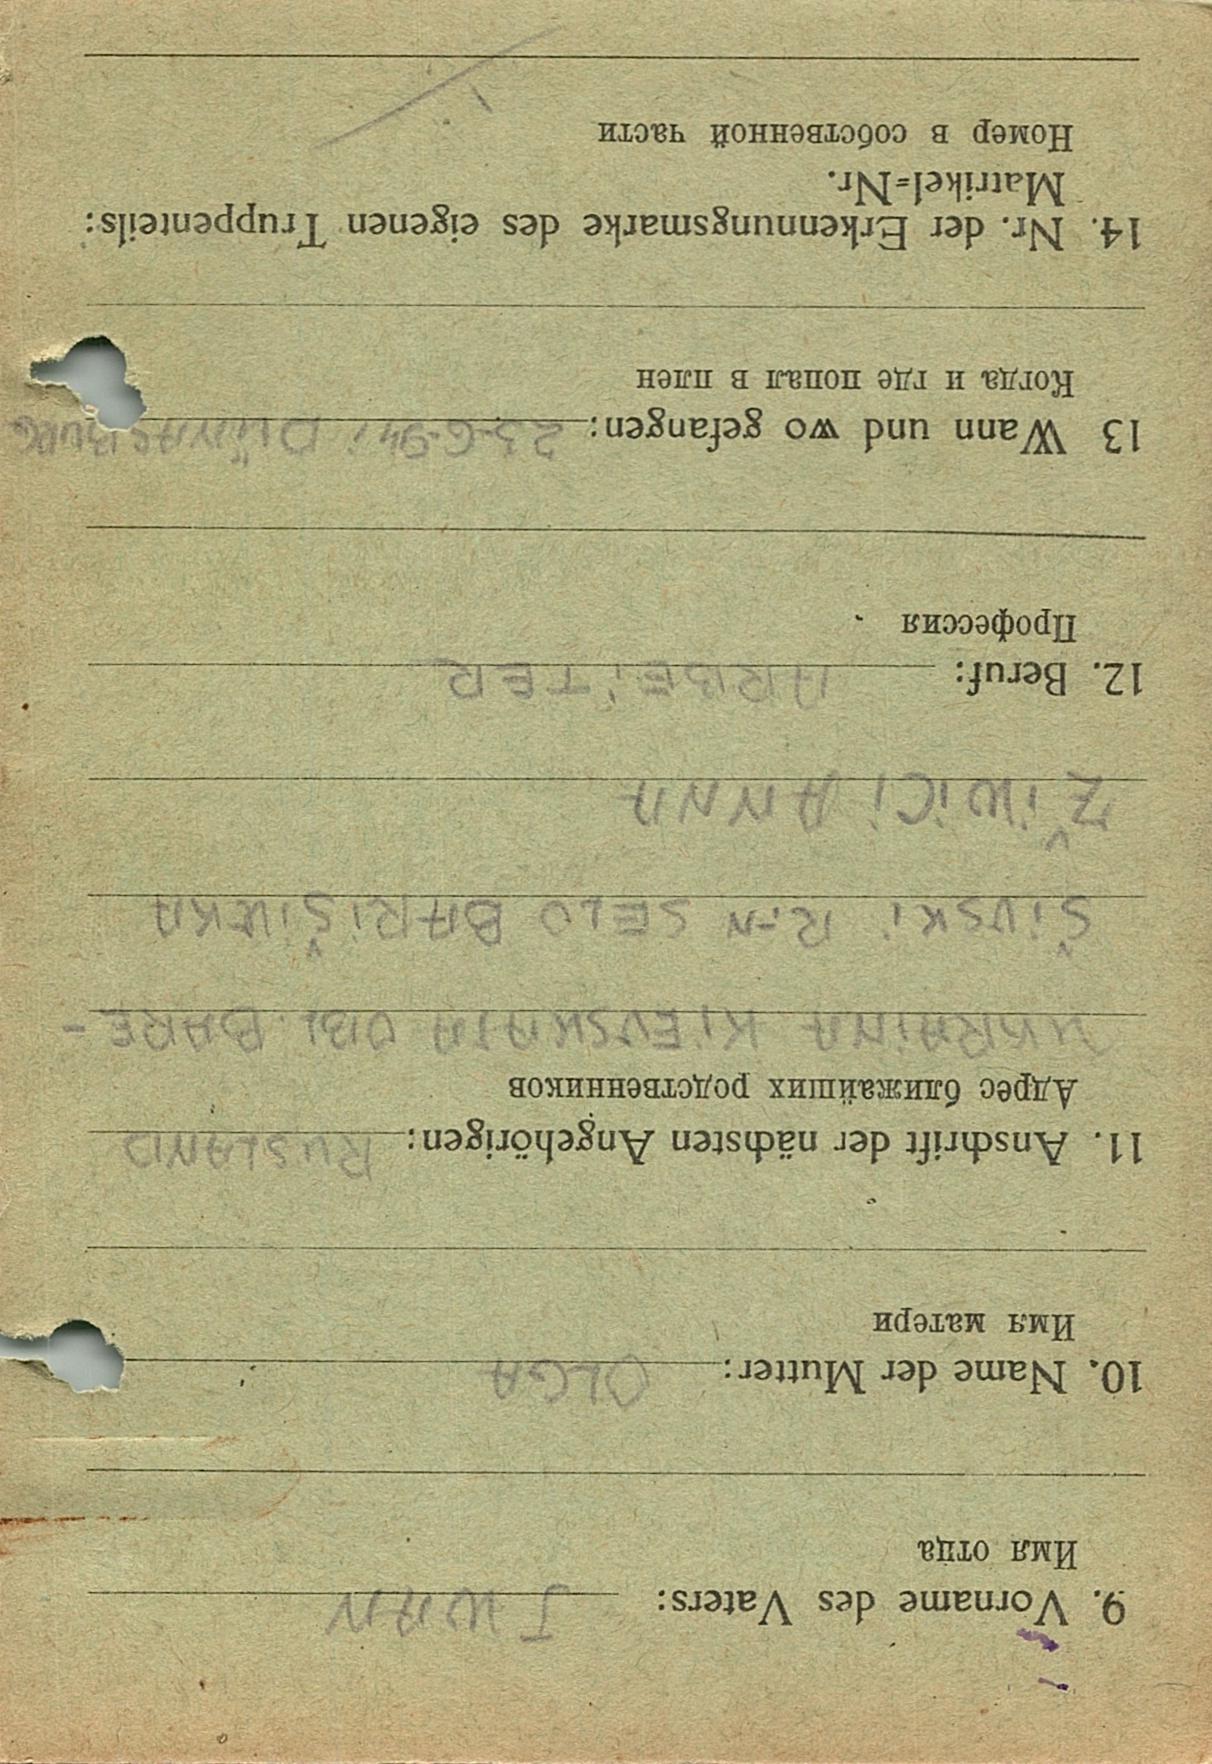 9. Vorname des Vaters: IWAN
Имя отца
10. Name der Mutter: OLGA
Имя матери
11. Anschrift der nächsten Angehörigen: RUSLAND
Адрес ближайших родственников
UKRAINA KIEVSKAJA OBL BARE-
ŠIVSKI R-N SELO BARIŠIVKA
ŽIWICI ANNA
12. Beruf: ARBEITER
Профессия
13 Wann und wo gefangen: 23-6-941 DÜNASBURG
Когда и где попал в плен
14. Nr. der Erkennungsmarke des eigenen Truppenteils:
Matrikel=Nr.
Номер в собственной части